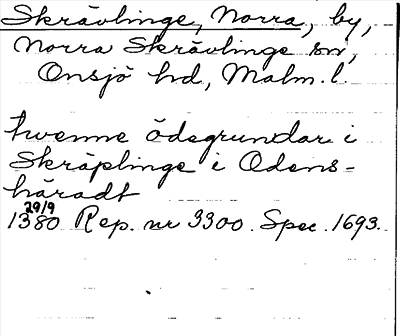 Skrävlinge, Norra, by,
Norra Skrävlinge sn,
Onsjö hd, Malm. l.
twenne ödegrundar i
Skräplinge i Odens-
häradt
29/9
1380 Rep. nr 3300. Spec. 1693.